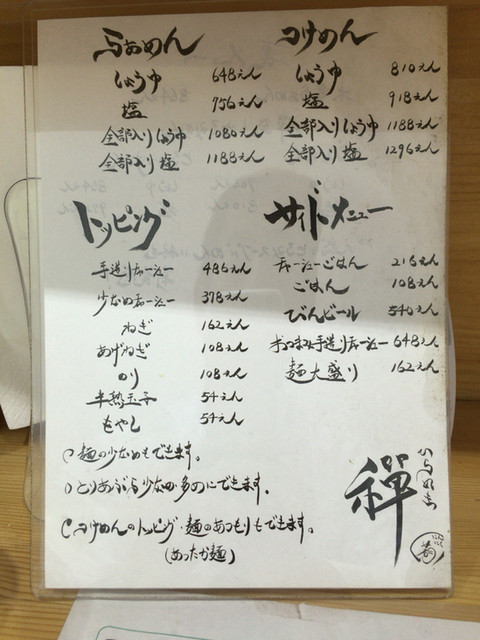 らぁめん
しょうゆ 648えん
塩 756えん
全部入りしょうゆ 1080えん
全部入り塩 1188えん
つけめん
しょうゆ 810えん
塩 918えん
全部入りしょうゆ 1188えん
全部入り塩 1296えん
トッピング
手造りチャーシュー 486えん
少なめチャーシュー 378えん
ねぎ 162えん
あげねぎ 108えん
のり 108えん
半熟玉子 54えん
もやし 54えん
サイドメニュー
チャーシューごはん 216えん
ごはん 108えん
びんビール 540えん
おつまみ手造りチャーシュー 648えん
麺大盛り 162えん
麺の少なめもできます。
とりあぶら少なめ・多めにできます。
つけめんのトッピング・麺のあつもりもできます。
(あったか麺)
禅